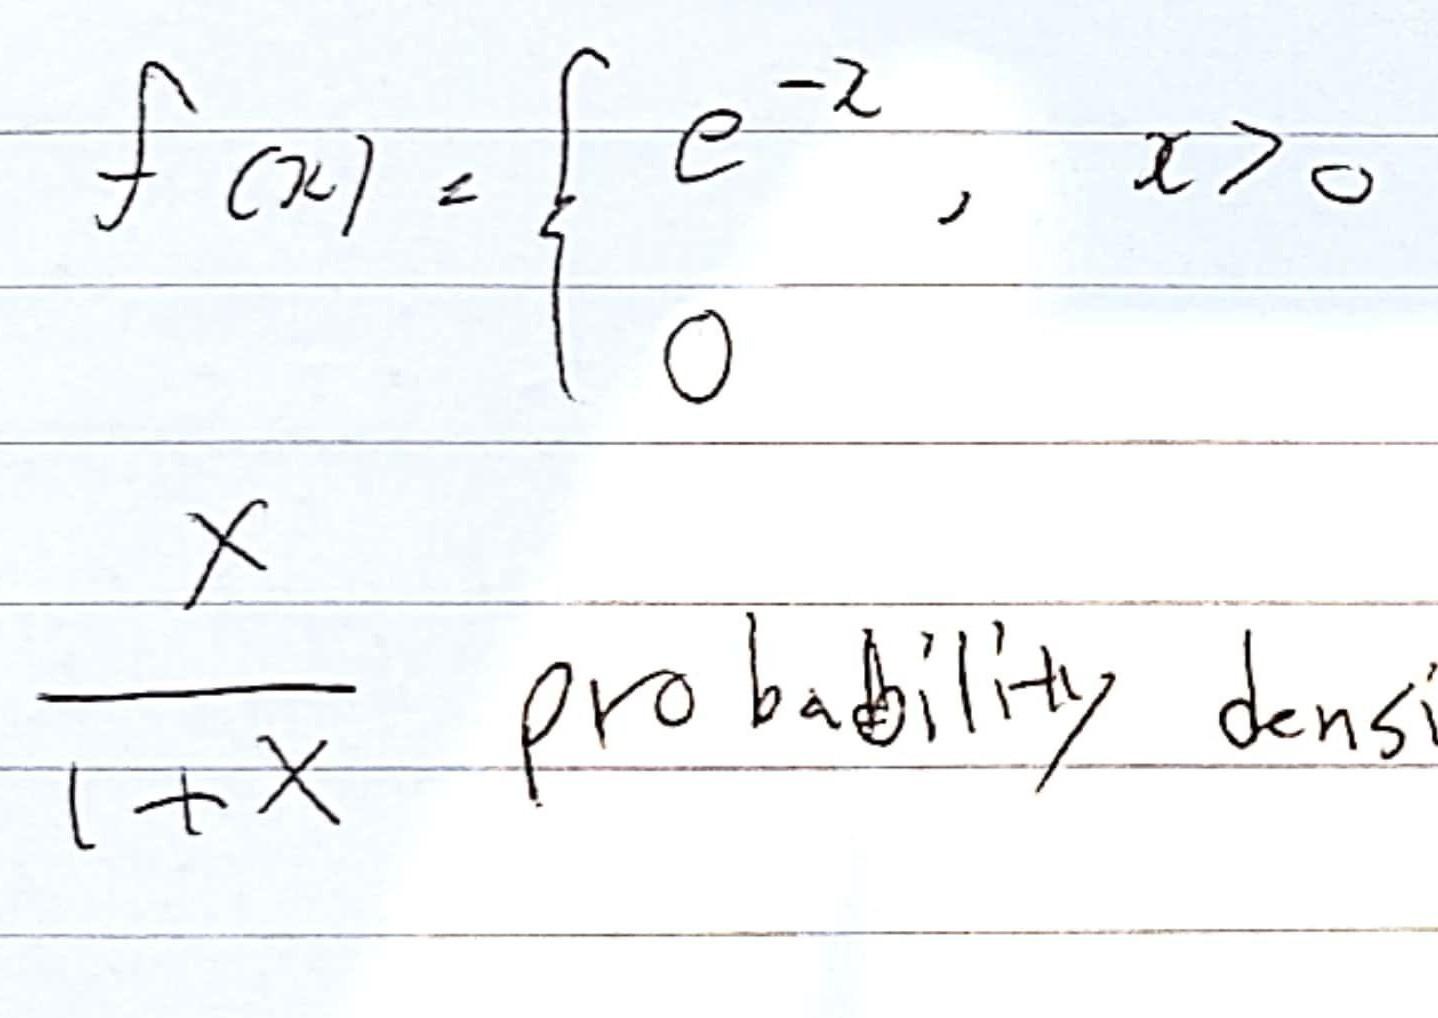 f(x) = { e^{-x}, x>0
0
X
1+X probability densi